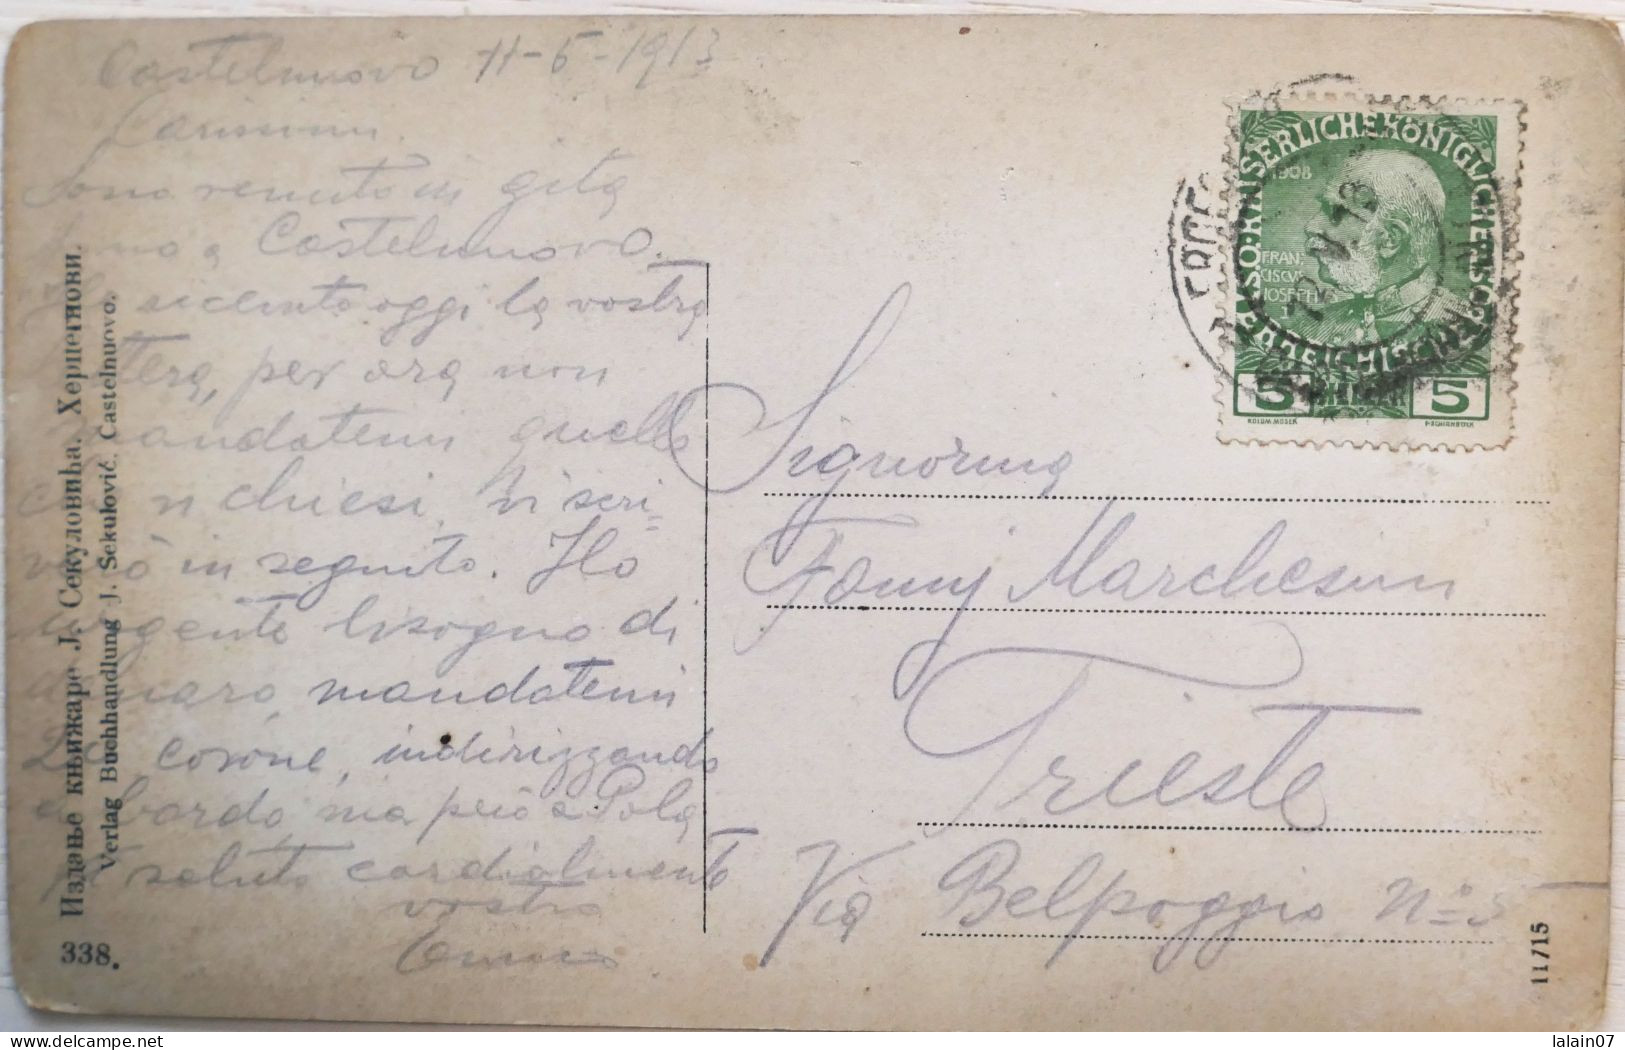 Castelnuovo 11-5-1913
Carissimi.
Sono venuto in gita
a Castelnuovo.
ricevuto oggi la vostra
lettera, per ora non
mandatemi quello
che vi chiesi, vi scri=
verò in seguito. Ho
urgente bisogno di
denaro, mandatemi
20 corone, indirizzando
a bordo, ma però a Pola
Vi saluto cordialmente
vostro
Издање књижаре Ј. Секуловића. Херцегнови.
Verlag Buchhandlung J. Sekulović. Castelnuovo.
338.
KAISERLICHE KÖNIGLICHE
ÖSTERREICHISCHE POST
1908
FRAN-
CISCVS
IOSEPH
I
5 HELLER 5
KOLOM. MOSER
F. SCHIRNBÖCK
12 V 13
Signorina
Fanny Marchesini
Trieste
Via Belpoggio Nº 5
11/15
lalain07